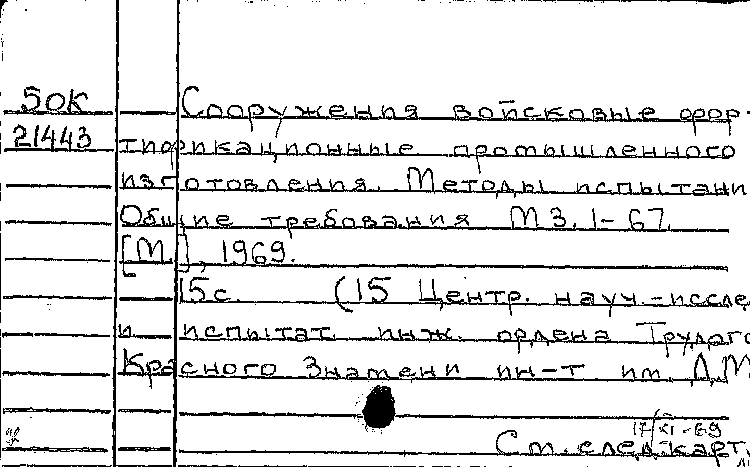 50К
21443
Сооружения войсковые фор-
тификационные промышленного
изготовления. Методы испытани
Общие требования МЗ.1-67.
[М.], 1969.
15с. (15 Центр. науч.-иссле
и испытат. инж. ордена Трудого
Красного Знамени ин-т им. Д.М
17/XI-69
См. след. карт.